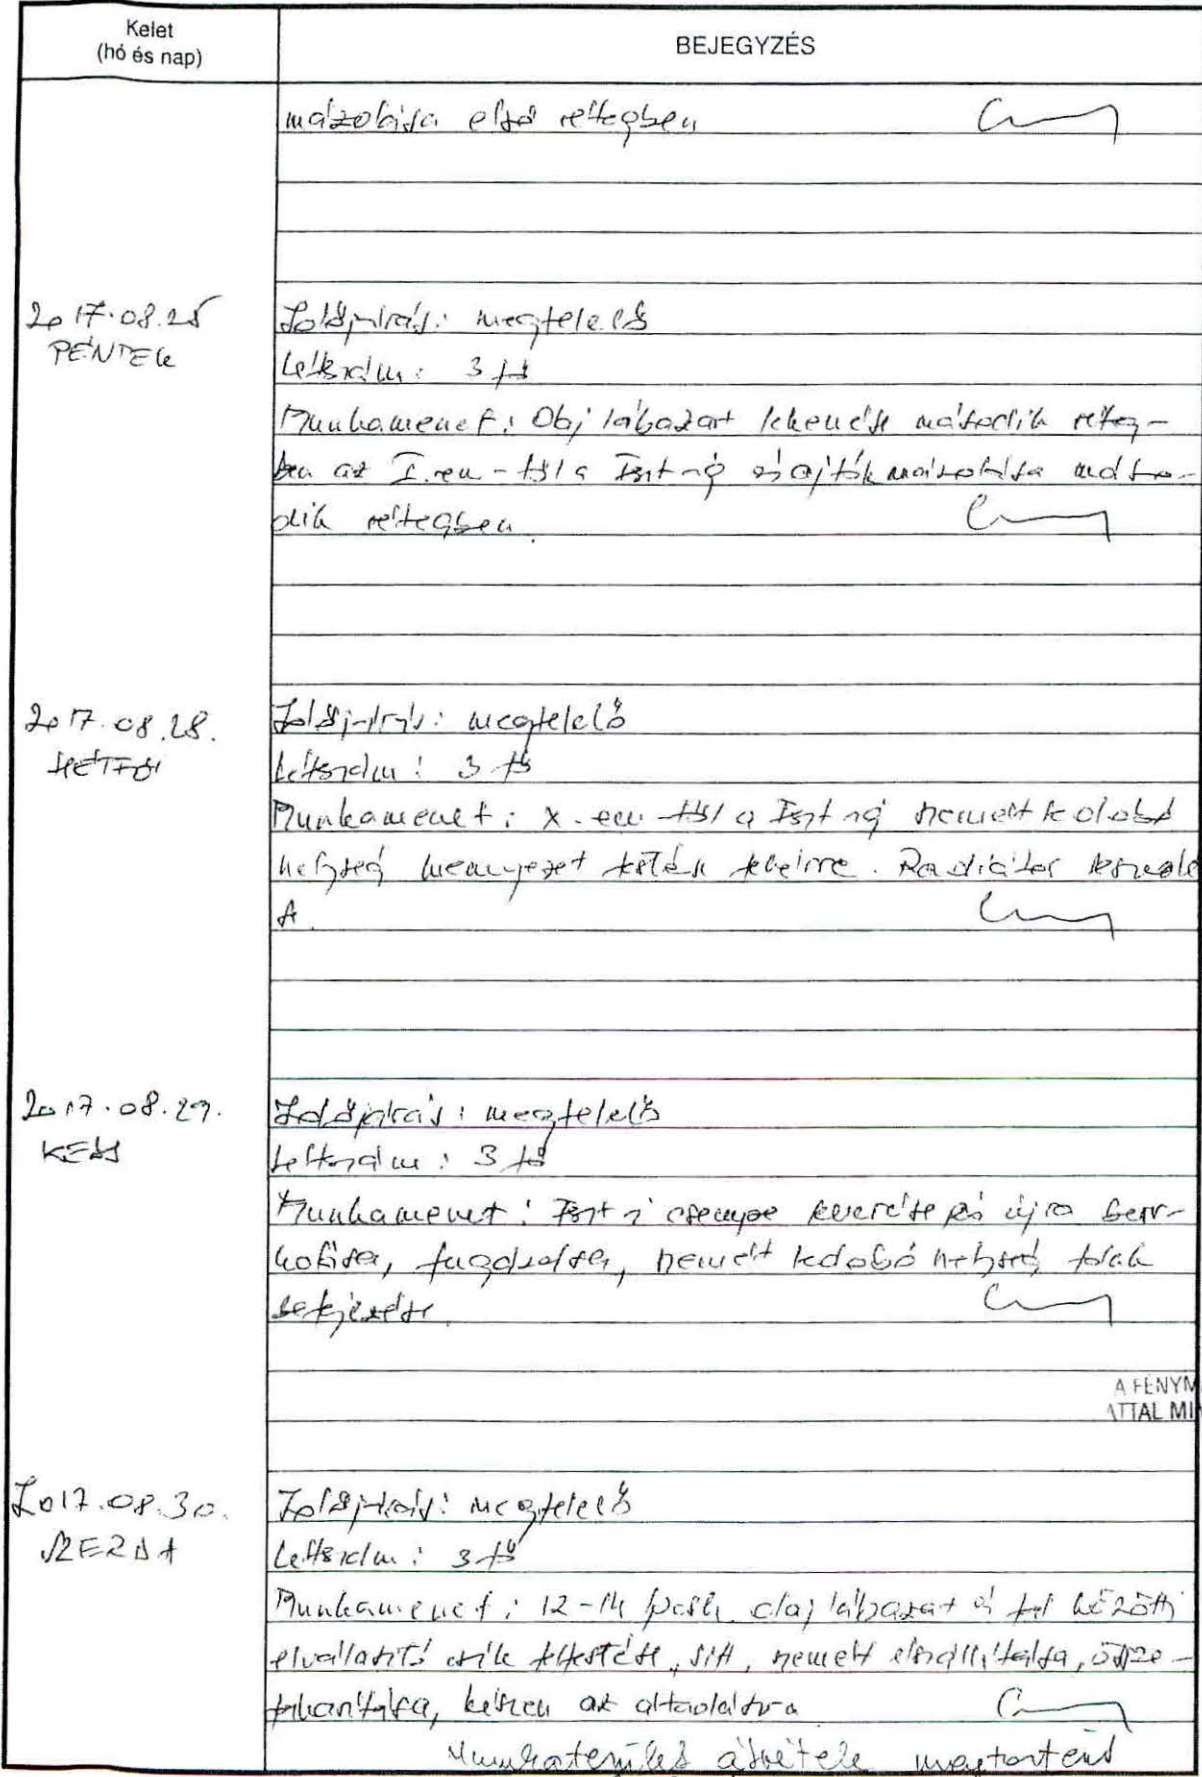 Kelet
(hó és nap)
BEJEGYZÉS
mázolása első rétegben
2017.08.25
PÉNTEK
Időjárás: megfelelő
Létszám: 3 fő
Munkamenet: Olaj lábazat lekenése második réteg-
ben az I. em-től a Fszt-ig és ajtók mázolása máso-
dik rétegben.
2017.08.28.
HÉTFŐ
Időjárás: megfelelő
Létszám: 3 fő
Munkamenet: X. em-től a Fszt-ig szemét ledobó
helység mennyezet festék
Radiátor
2017.08.29.
KEDD
Időjárás: megfelelő
Létszám: 3 fő
Munkamenet: Fszt-i csempe leverése és újra bur-
kolása, fugázása, szemét ledobó helység falak
befejezése.
A FÉNYM
ATTAL MI
2017.08.30.
SZERDA
Időjárás: megfelelő
Létszám: 3 fő
Munkamenet: 12-14 olaj lábazat és fal közötti
elválasztó csík felfestése, sitt, szemét elszállítása, össze-
takarítása, készen az átadásra
Munkaterület átvétele megtörtént